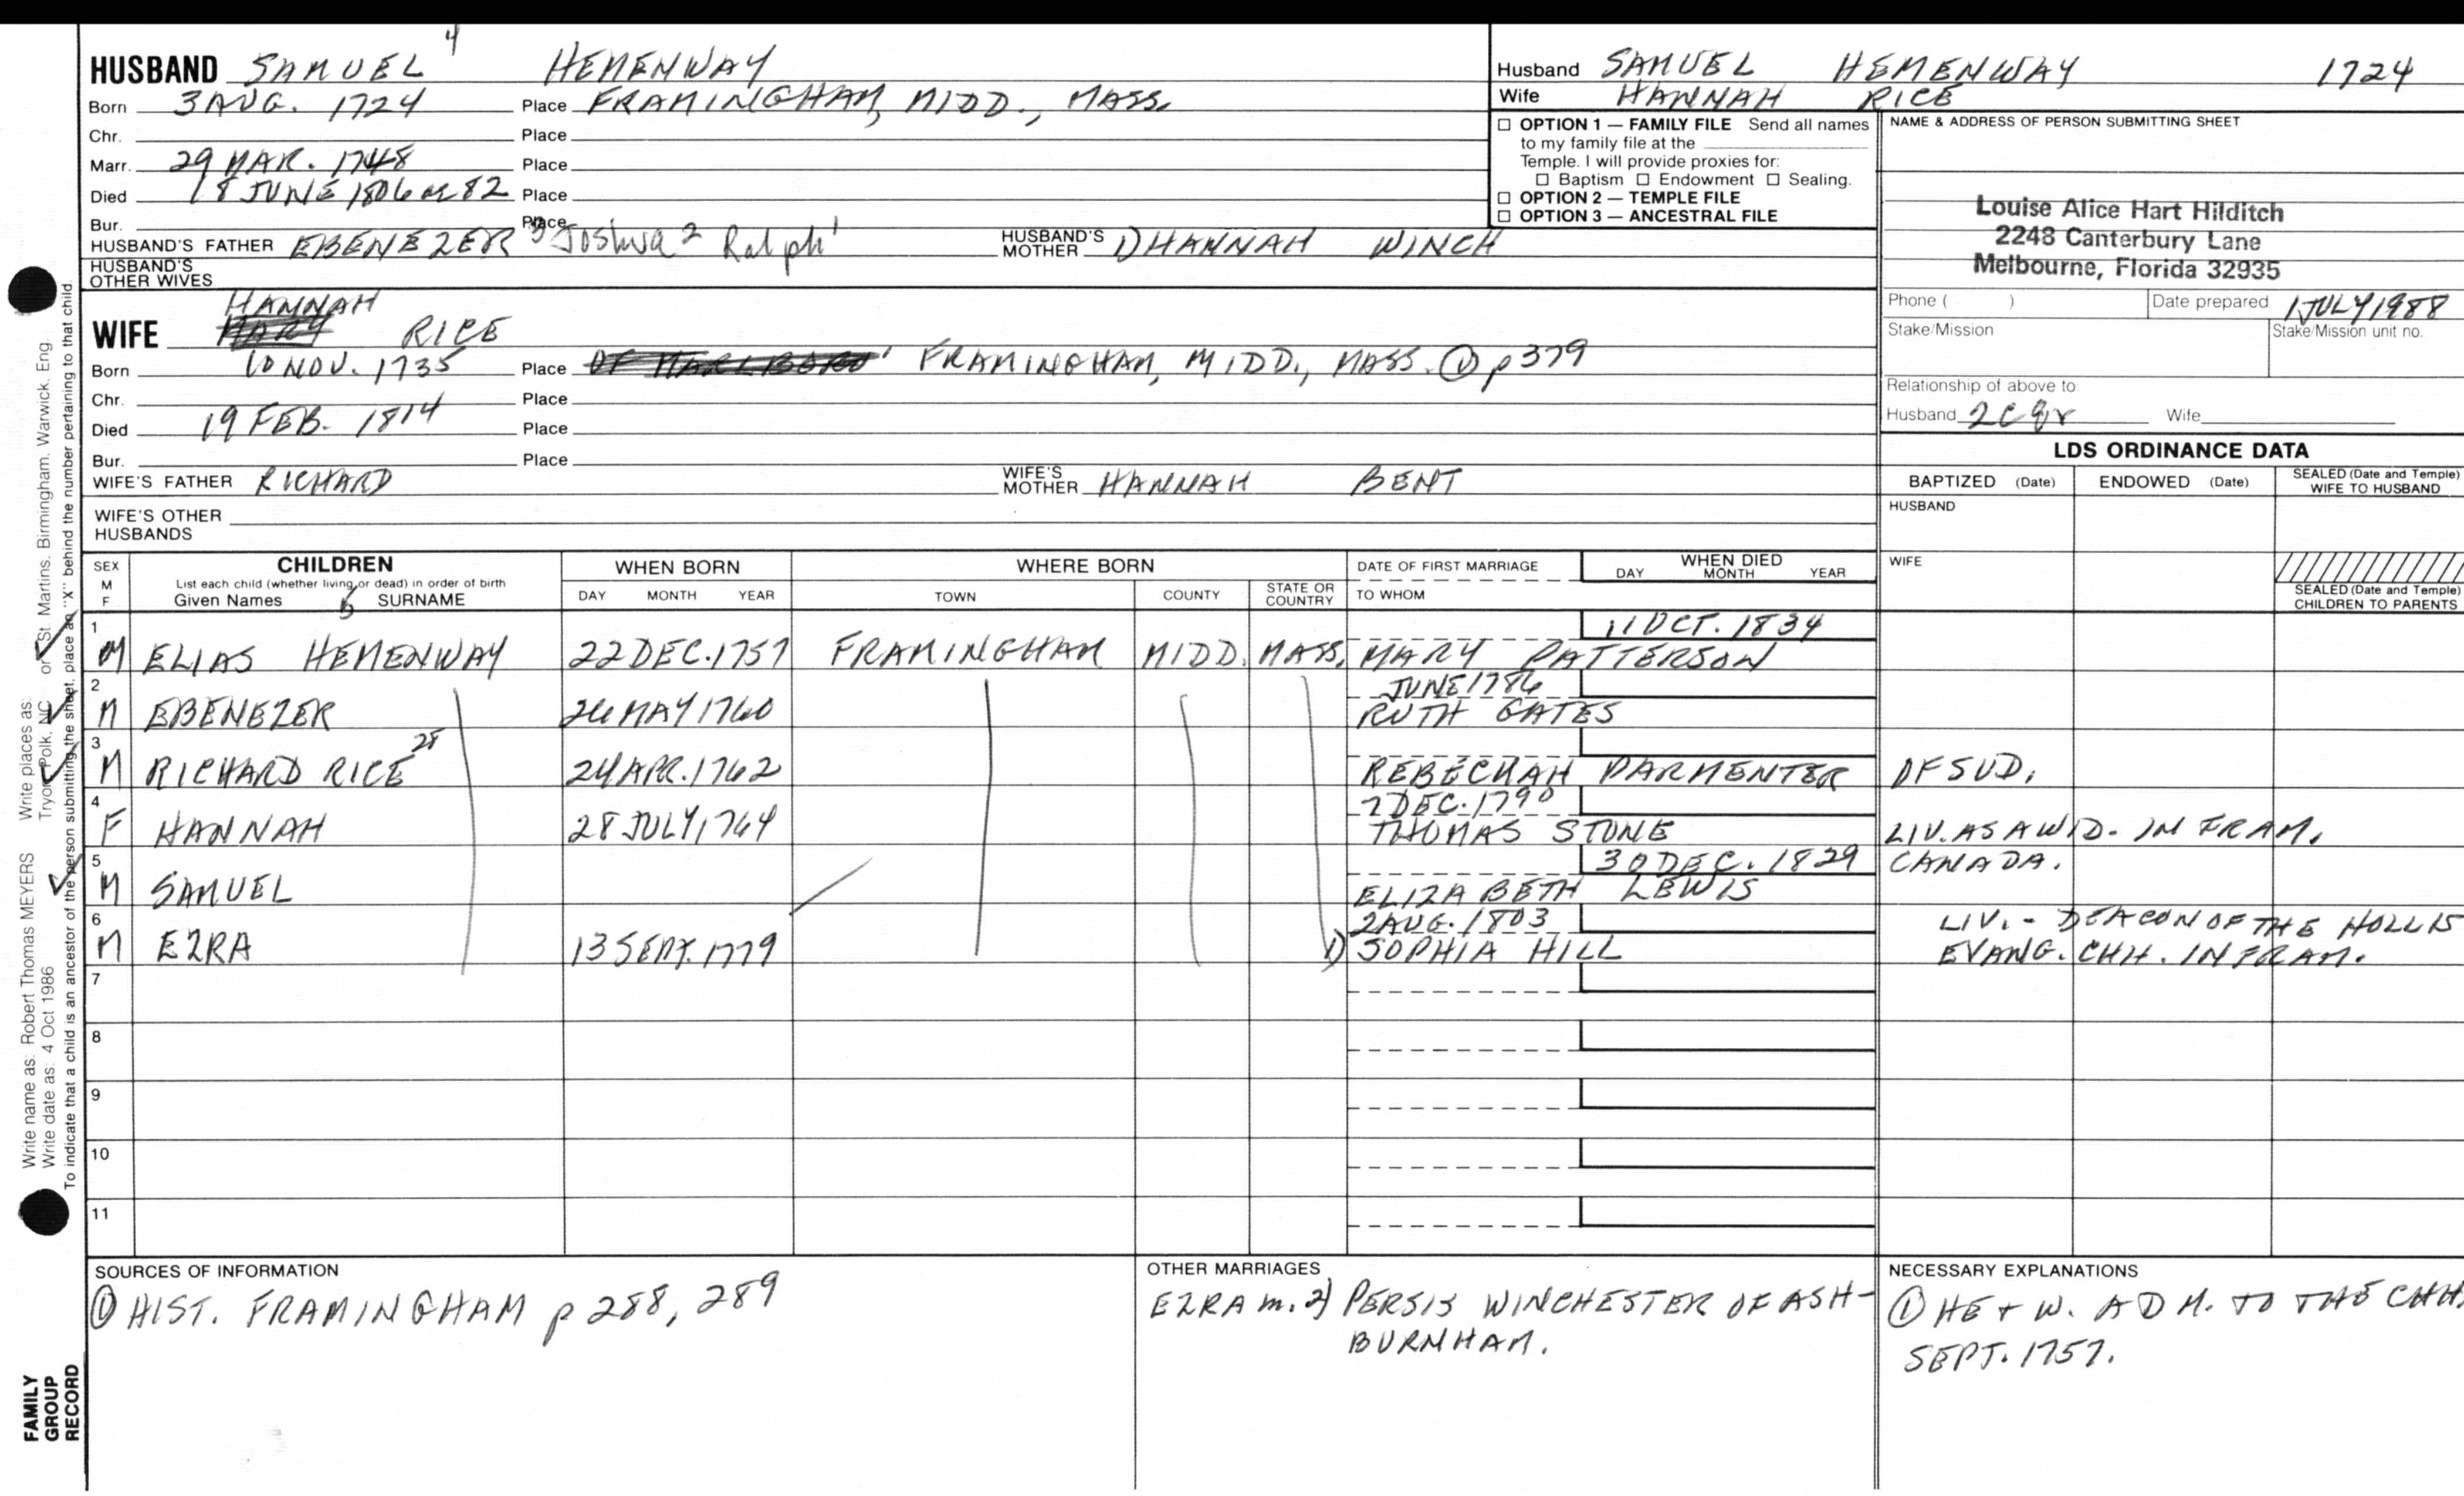 4
HUSBAND SAMUEL HEMENWAY
Born 3 AUG. 1724 Place FRAMINGHAM, MIDD., MASS.
Chr. Place
Marr. 29 MAR. 1748 Place
Died 18 JUNE 1806 or 82 Place
Bur. Place
HUSBAND'S FATHER EBENEZER 3 Joshua 2 Ralph 1 HUSBAND'S MOTHER HANNAH WINCH
HUSBAND'S OTHER WIVES
HANNAH
WIFE MARY RICE
Born 10 NOV. 1735 Place OF MARLBORO' FRAMINGHAM, MIDD., MASS. ① p379
Chr. Place
Died 19 FEB. 1814 Place
Bur. Place
WIFE'S FATHER RICHARD WIFE'S MOTHER HANNAH BENT
WIFE'S OTHER HUSBANDS
Husband SAMUEL HEMENWAY 1724
Wife HANNAH RICE
☐ OPTION 1 — FAMILY FILE Send all names
to my family file at the
Temple. I will provide proxies for:
☐ Baptism ☐ Endowment ☐ Sealing.
☐ OPTION 2 — TEMPLE FILE
☐ OPTION 3 — ANCESTRAL FILE
NAME & ADDRESS OF PERSON SUBMITTING SHEET
Louise Alice Hart Hilditch
2248 Canterbury Lane
Melbourne, Florida 32935
Phone ( ) Date prepared 1 JULY 1988
Stake/Mission Stake/Mission unit no.
Relationship of above to:
Husband 2C8r Wife
LDS ORDINANCE DATA
BAPTIZED (Date) ENDOWED (Date) SEALED (Date and Temple) WIFE TO HUSBAND
HUSBAND
WIFE
SEALED (Date and Temple) CHILDREN TO PARENTS
SEX M F CHILDREN WHEN BORN WHERE BORN DATE OF FIRST MARRIAGE WHEN DIED
List each child (whether living or dead) in order of birth
Given Names 5 SURNAME DAY MONTH YEAR TOWN COUNTY STATE OR COUNTRY TO WHOM DAY MONTH YEAR
1 11 OCT. 1834
M ELIAS HEMENWAY 22 DEC. 1757 FRAMINGHAM MIDD. MASS. MARY PATTERSON
2 JUNE 1786
M EBENEZER 26 MAY 1760 RUTH GATES
3
M RICHARD RICE 28 24 APR. 1762 REBECKAH PARMENTER OF SUD.
4 7 DEC. 1790
F HANNAH 28 JULY 1764 THOMAS STONE LIV. AS A WID. IN FRAM.
5 30 DEC. 1829 CANADA.
M SAMUEL ELIZABETH LEWIS
6 2 AUG. 1803 LIV. - DEACON OF THE HOLLIS
M EZRA 13 SEPT. 1779 1) SOPHIA HILL EVANG. CHH. IN FRAM.
7
8
9
10
11
SOURCES OF INFORMATION
① HIST. FRAMINGHAM p 288, 289
OTHER MARRIAGES
EZRA m. 2) PERSIS WINCHESTER OF ASH-
BURNHAM.
NECESSARY EXPLANATIONS
① HE + W. ADM. TO THE CHH.
SEPT. 1757.
Write name as: Robert Thomas MEYERS Write places as: Tryon, Polk, NC or St Martins, Birmingham, Warwick, Eng.
Write date as: 4 Oct 1986
To indicate that a child is an ancestor of the person submitting the sheet, place an "X" behind the number pertaining to that child
FAMILY
GROUP
RECORD